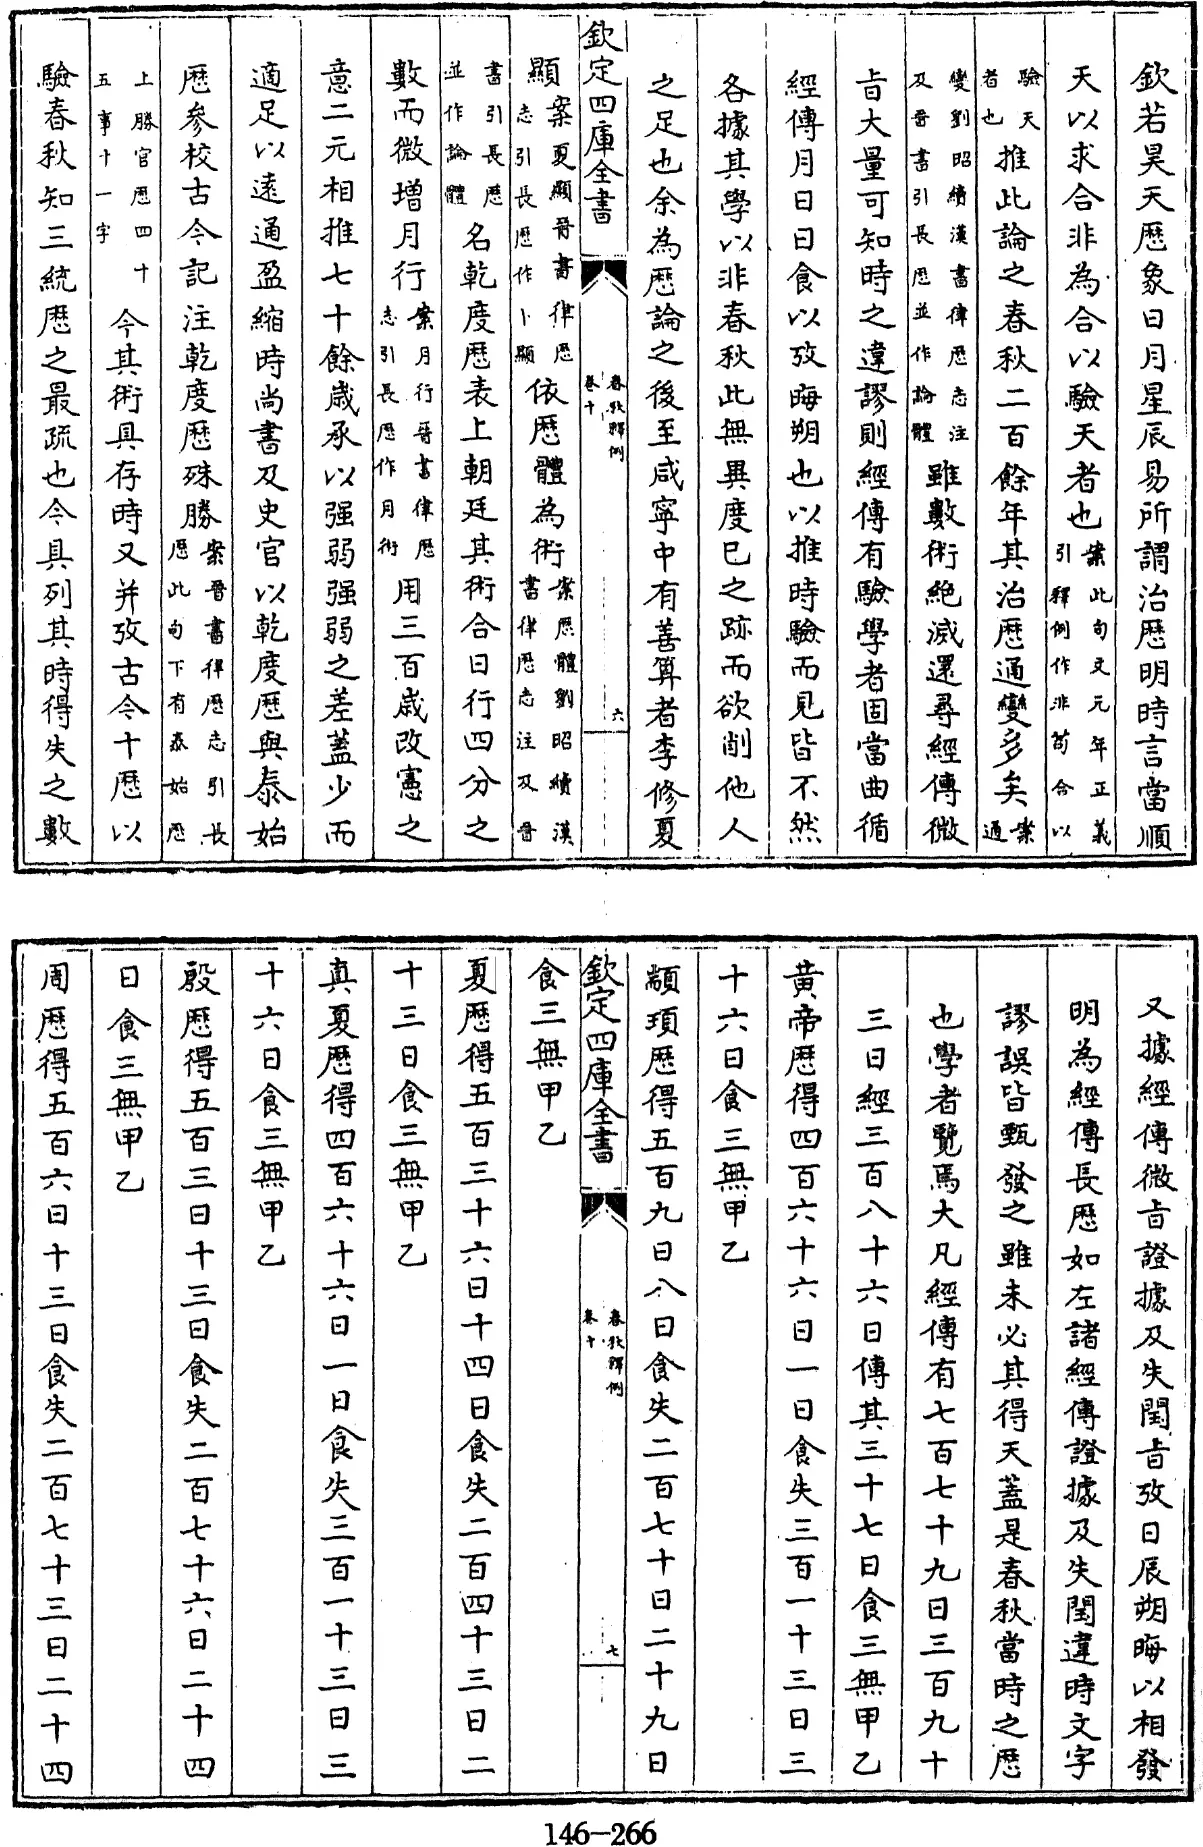 欽若昊天歴象日月星辰易所謂治歴明時言當順
天以求合非為合以驗天者也案此句文元年正義引釋例作非苟合以
驗天者也推此論之春秋二百餘年其治歴通變多矣案通
變劉昭續漢書律歴志注及晉書引長歴並作論體雖數術絶滅還尋經傳微
㫖大量可知時之違謬則經傳有驗學者固當曲循
經傳月日日食以攷晦朔也以推時驗而見皆不然
各據其學以非春秋此無異度已之跡而欲削他人
之足也余為歴論之後至咸寧中有善算者李修夏
欽定四庫全書
春秋釋例
卷十
六
顯案夏顯晉書律歴志引長歴作卜顯依歴體為術案歴體劉昭續漢書律歴志注及晉
書引長歴並作論體名乾度歴表上朝廷其術合日行四分之
數而微增月行案月行晉書律歴志引長歴作月術用三百歲改憲之
意二元相推七十餘歲承以强弱强弱之差蓋少而
適足以逺通盈縮時尚書及史官以乾度歴與泰始
歴參校古今記注乾度歴殊勝案晉書律歴志引長歴此句下有泰始歴
上勝官歴四十五事十一字今其術具存時又并攷古今十歴以
驗春秋知三統歴之最疏也今具列其時得失之數
又據經傳微㫖證據及失閏㫖攷日辰朔晦以相發
明為經傳長歴如左諸經傳證據及失閏違時文字
謬誤皆甄發之雖未必其得天蓋是春秋當時之歴
也學者覽焉大凡經傳有七百七十九日三百九十
三日經三百八十六日傳其三十七日食三無甲乙
黄帝歴得四百六十六日一日食失三百一十三日三
十六日食三無甲乙
顓頊歴得五百九日八日食失二百七十日二十九日
欽定四庫全書
春秋釋例
卷十
七
食三無甲乙
夏歴得五百三十六日十四日食失二百四十三日二
十三日食三無甲乙
真夏歴得四百六十六日一日食失三百一十三日三
十六日食三無甲乙
殷歴得五百三日十三日食失二百七十六日二十四
日食三無甲乙
周歴得五百六日十三日食失二百七十三日二十四
146-266